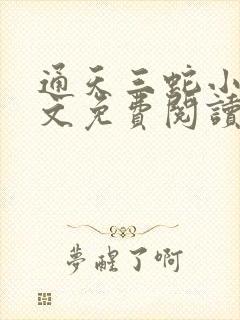 通天三蛇小
文免費閱讀
夢醒了啊